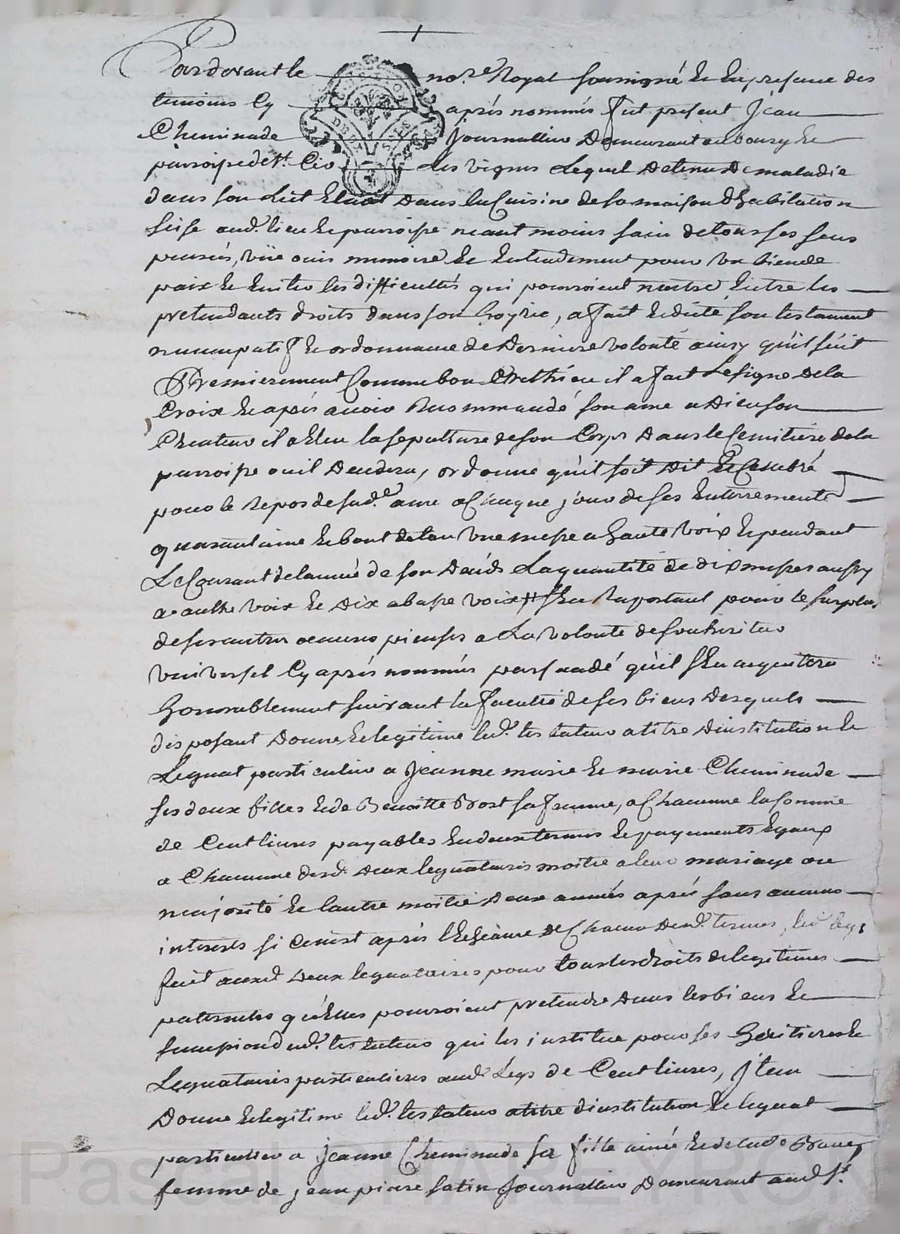 Pardevant le no.re Royal soussigné Et En presence des
temoins Cy après nommés fut présent Jean
Cheminade Journallier Demeurant au bourg Et
parroisse de st. Cir les vignes Lequel detenu De maladie
dans son Lict Etant Dans la Cuisine de sa maison d'habitation
sise aud. lieu Et parroisse néant moins sain de tous ses sens
pensée, vüe ouis memoire Et Entendement pour un bien de
paix Et Eviter les difficultés qui pourroient naitre Entre les
prétendants droits dans son hoyrie, a fait Et dicté son testament
nuncupatif Et ordonnance de Derniere volonté ainsy qu'il s'ûit
Premierement Comme bon Chrethien il a fait Le signe De la
Croix Et après avoir Recommandé son ame a Dieu son
Createur il a Eleu la sepulture de son Corps Dans le Cemitiere de la
parroisse ou il Decedera, ordonne qu'il soit Dit Et Celebré
pour le Repos de sad.e ame a Chaque jour de ses Enterrements
quarantaine Et bout de l'an une messe a haute voix Et pendant
Le Courant de l'année de son Décès La quantité de dix messes aussy
a aulte voix Et Dix a basse voix # s'En Raportant pour le surplus
de ses autres oeuvres pieuses a La volonté de son heritier
universel Cy après nommés persuadé qu'il s'En acquitera
honorablement suivant la faculté de ses biens Desquels
disposant Donne Et legitime led. testateur a titre D'institution Et
Legat particulier a Jeanne marie Et marie Cheminade
ses deux filles Et de Benoitte Brost sa femme, a Chacunne la somme
de Cent livres payables En deux termes Et payements Egaux
a Chacunne desd. Deux legataires moitié a leur mariage ou
majorité Et l'autre moitié Deux années après sans aucuns
interets si ce n'est après l'Echéance de Chacun Desd. termes, led. legs
fait auxd. Deux legataires pour tous les droits de legitimes
paternels qu'Elles pourroient pretendre Dans les biens Et
succession dud. testateur qui les institue pour ses heritieres Et
Legataires particulieres aud. Legs de Cent livres, Item
Donne Et legitime led. testateur a titre d'institution Et legat
particulier a Jeanne Cheminade sa fille ainée Et de lad.
femme de jean pierre satin Journallier Demeurant aud. st.
Pascal CHAREYRON